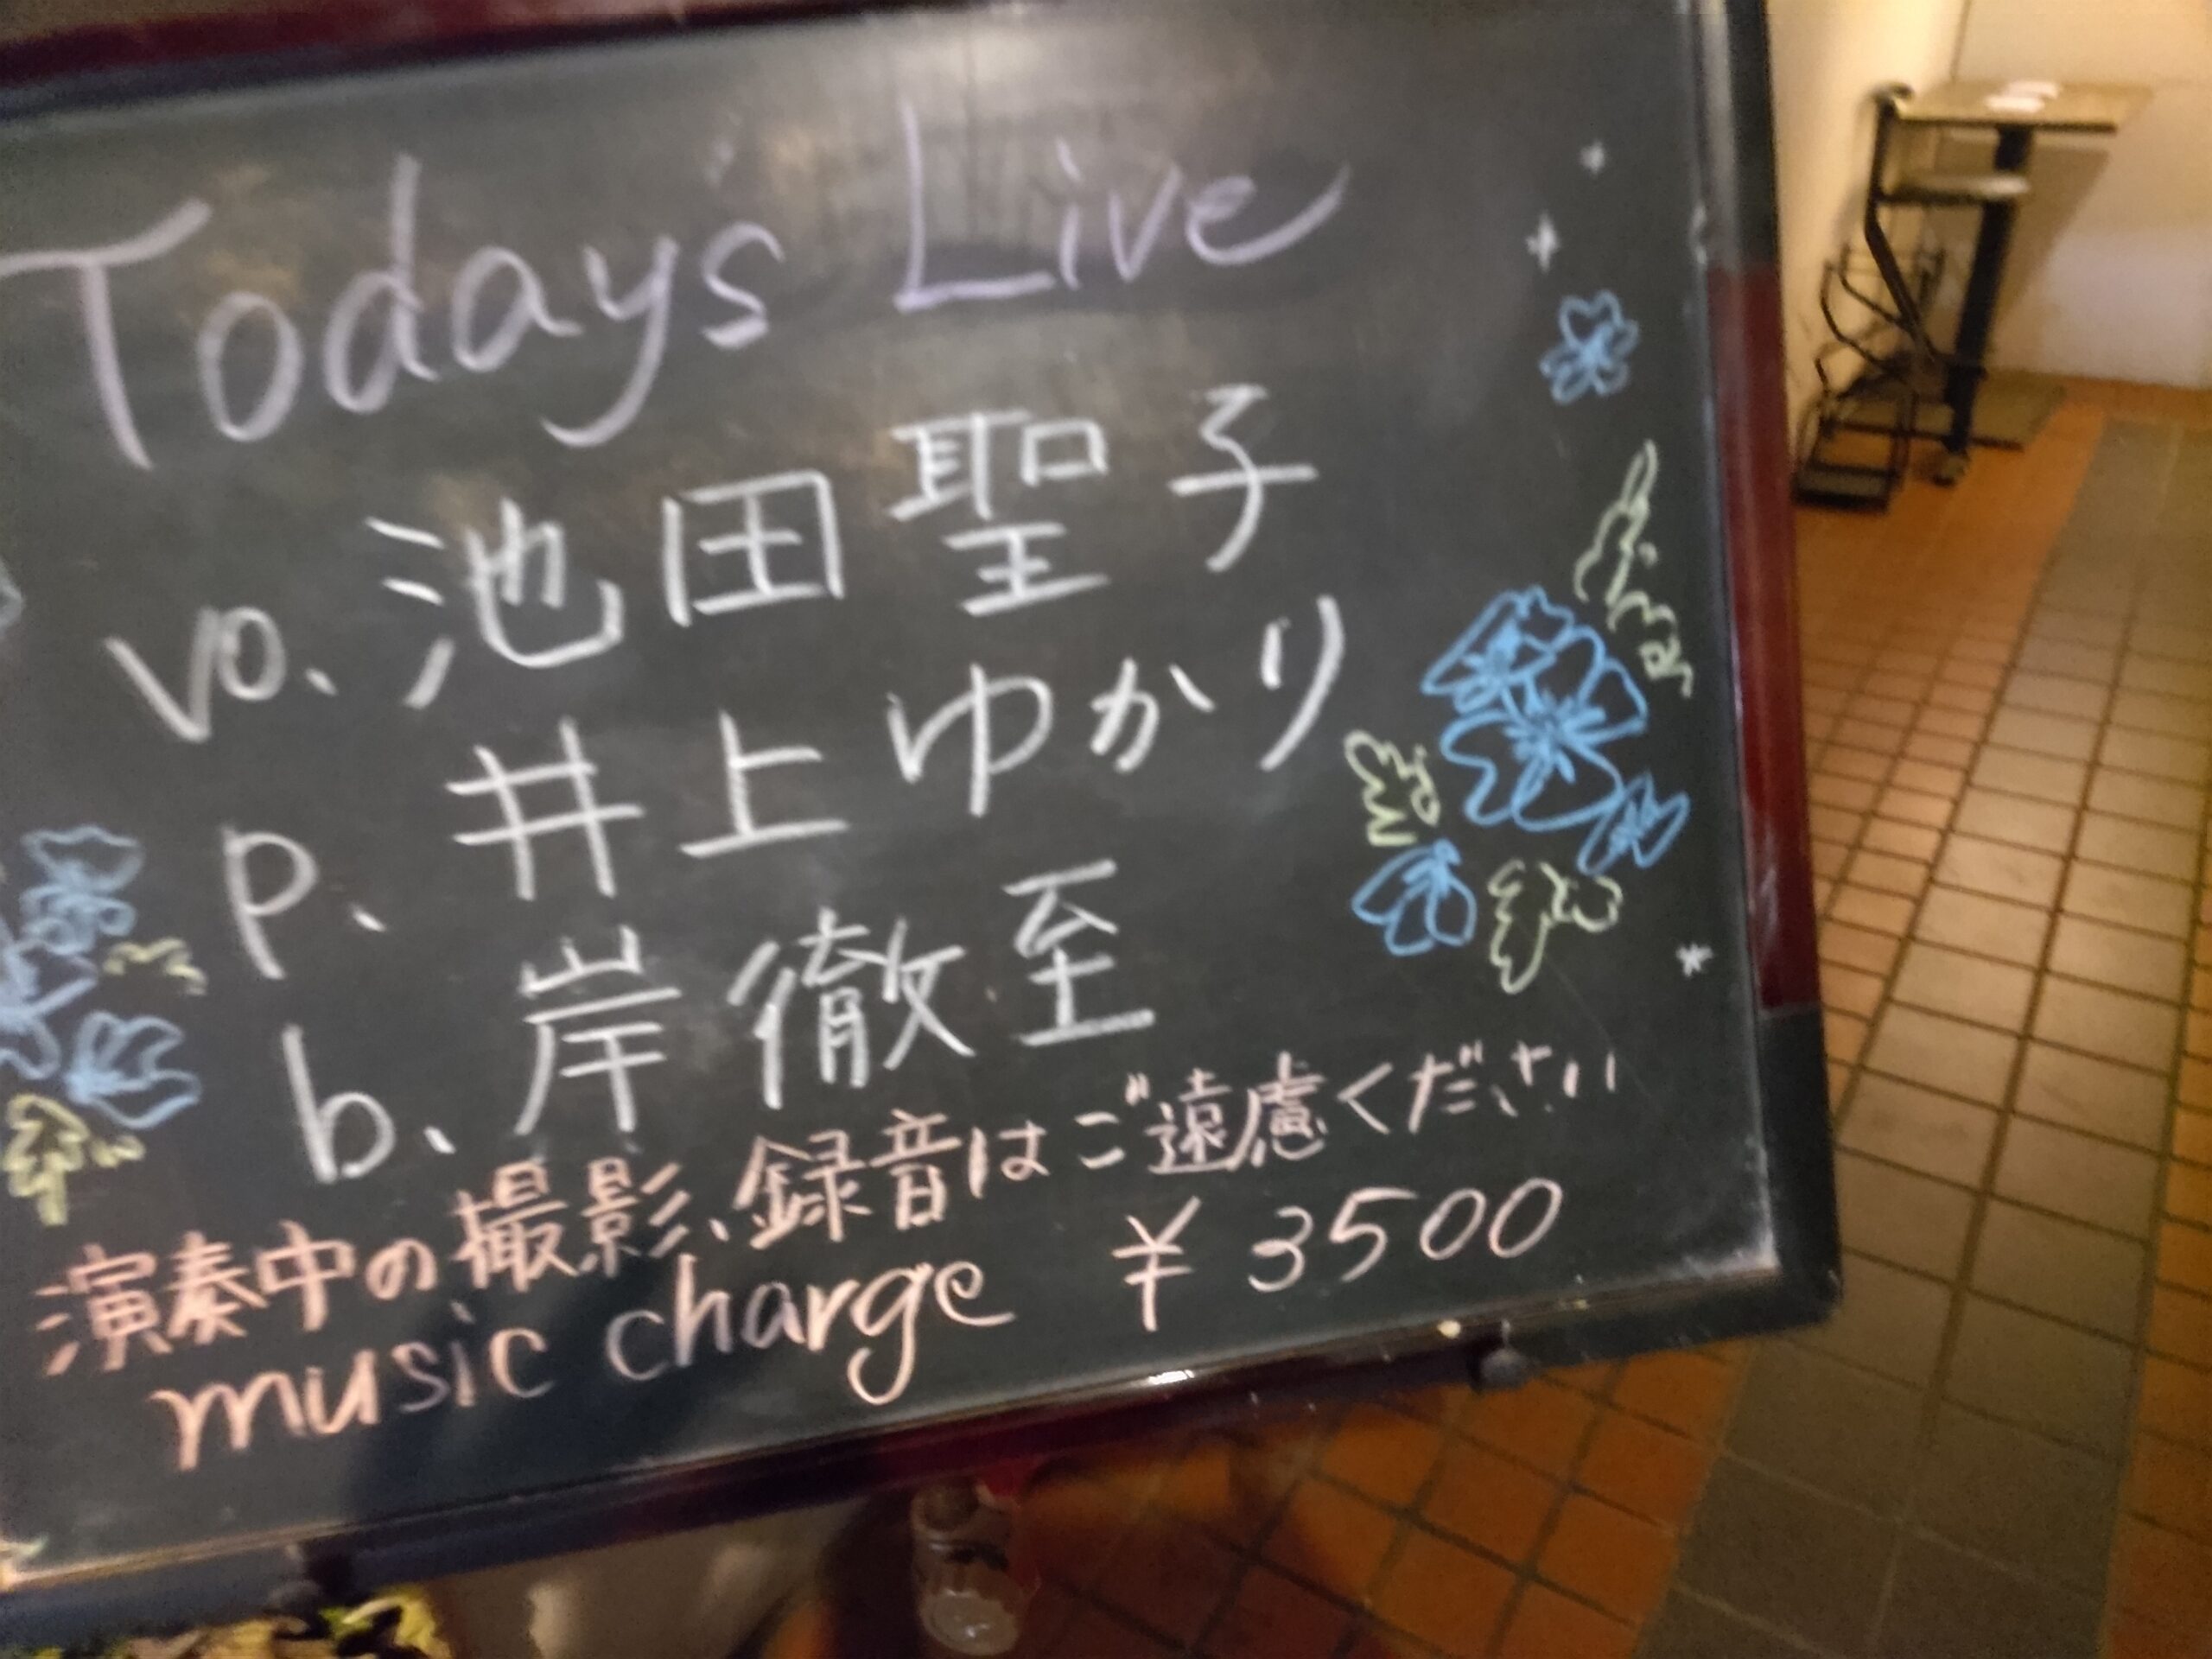 Today's Live
vo. 池田聖子
p、 井上ゆかり
b、 岸徹至
演奏中の撮影、録音はご遠慮ください
music charge ¥3500